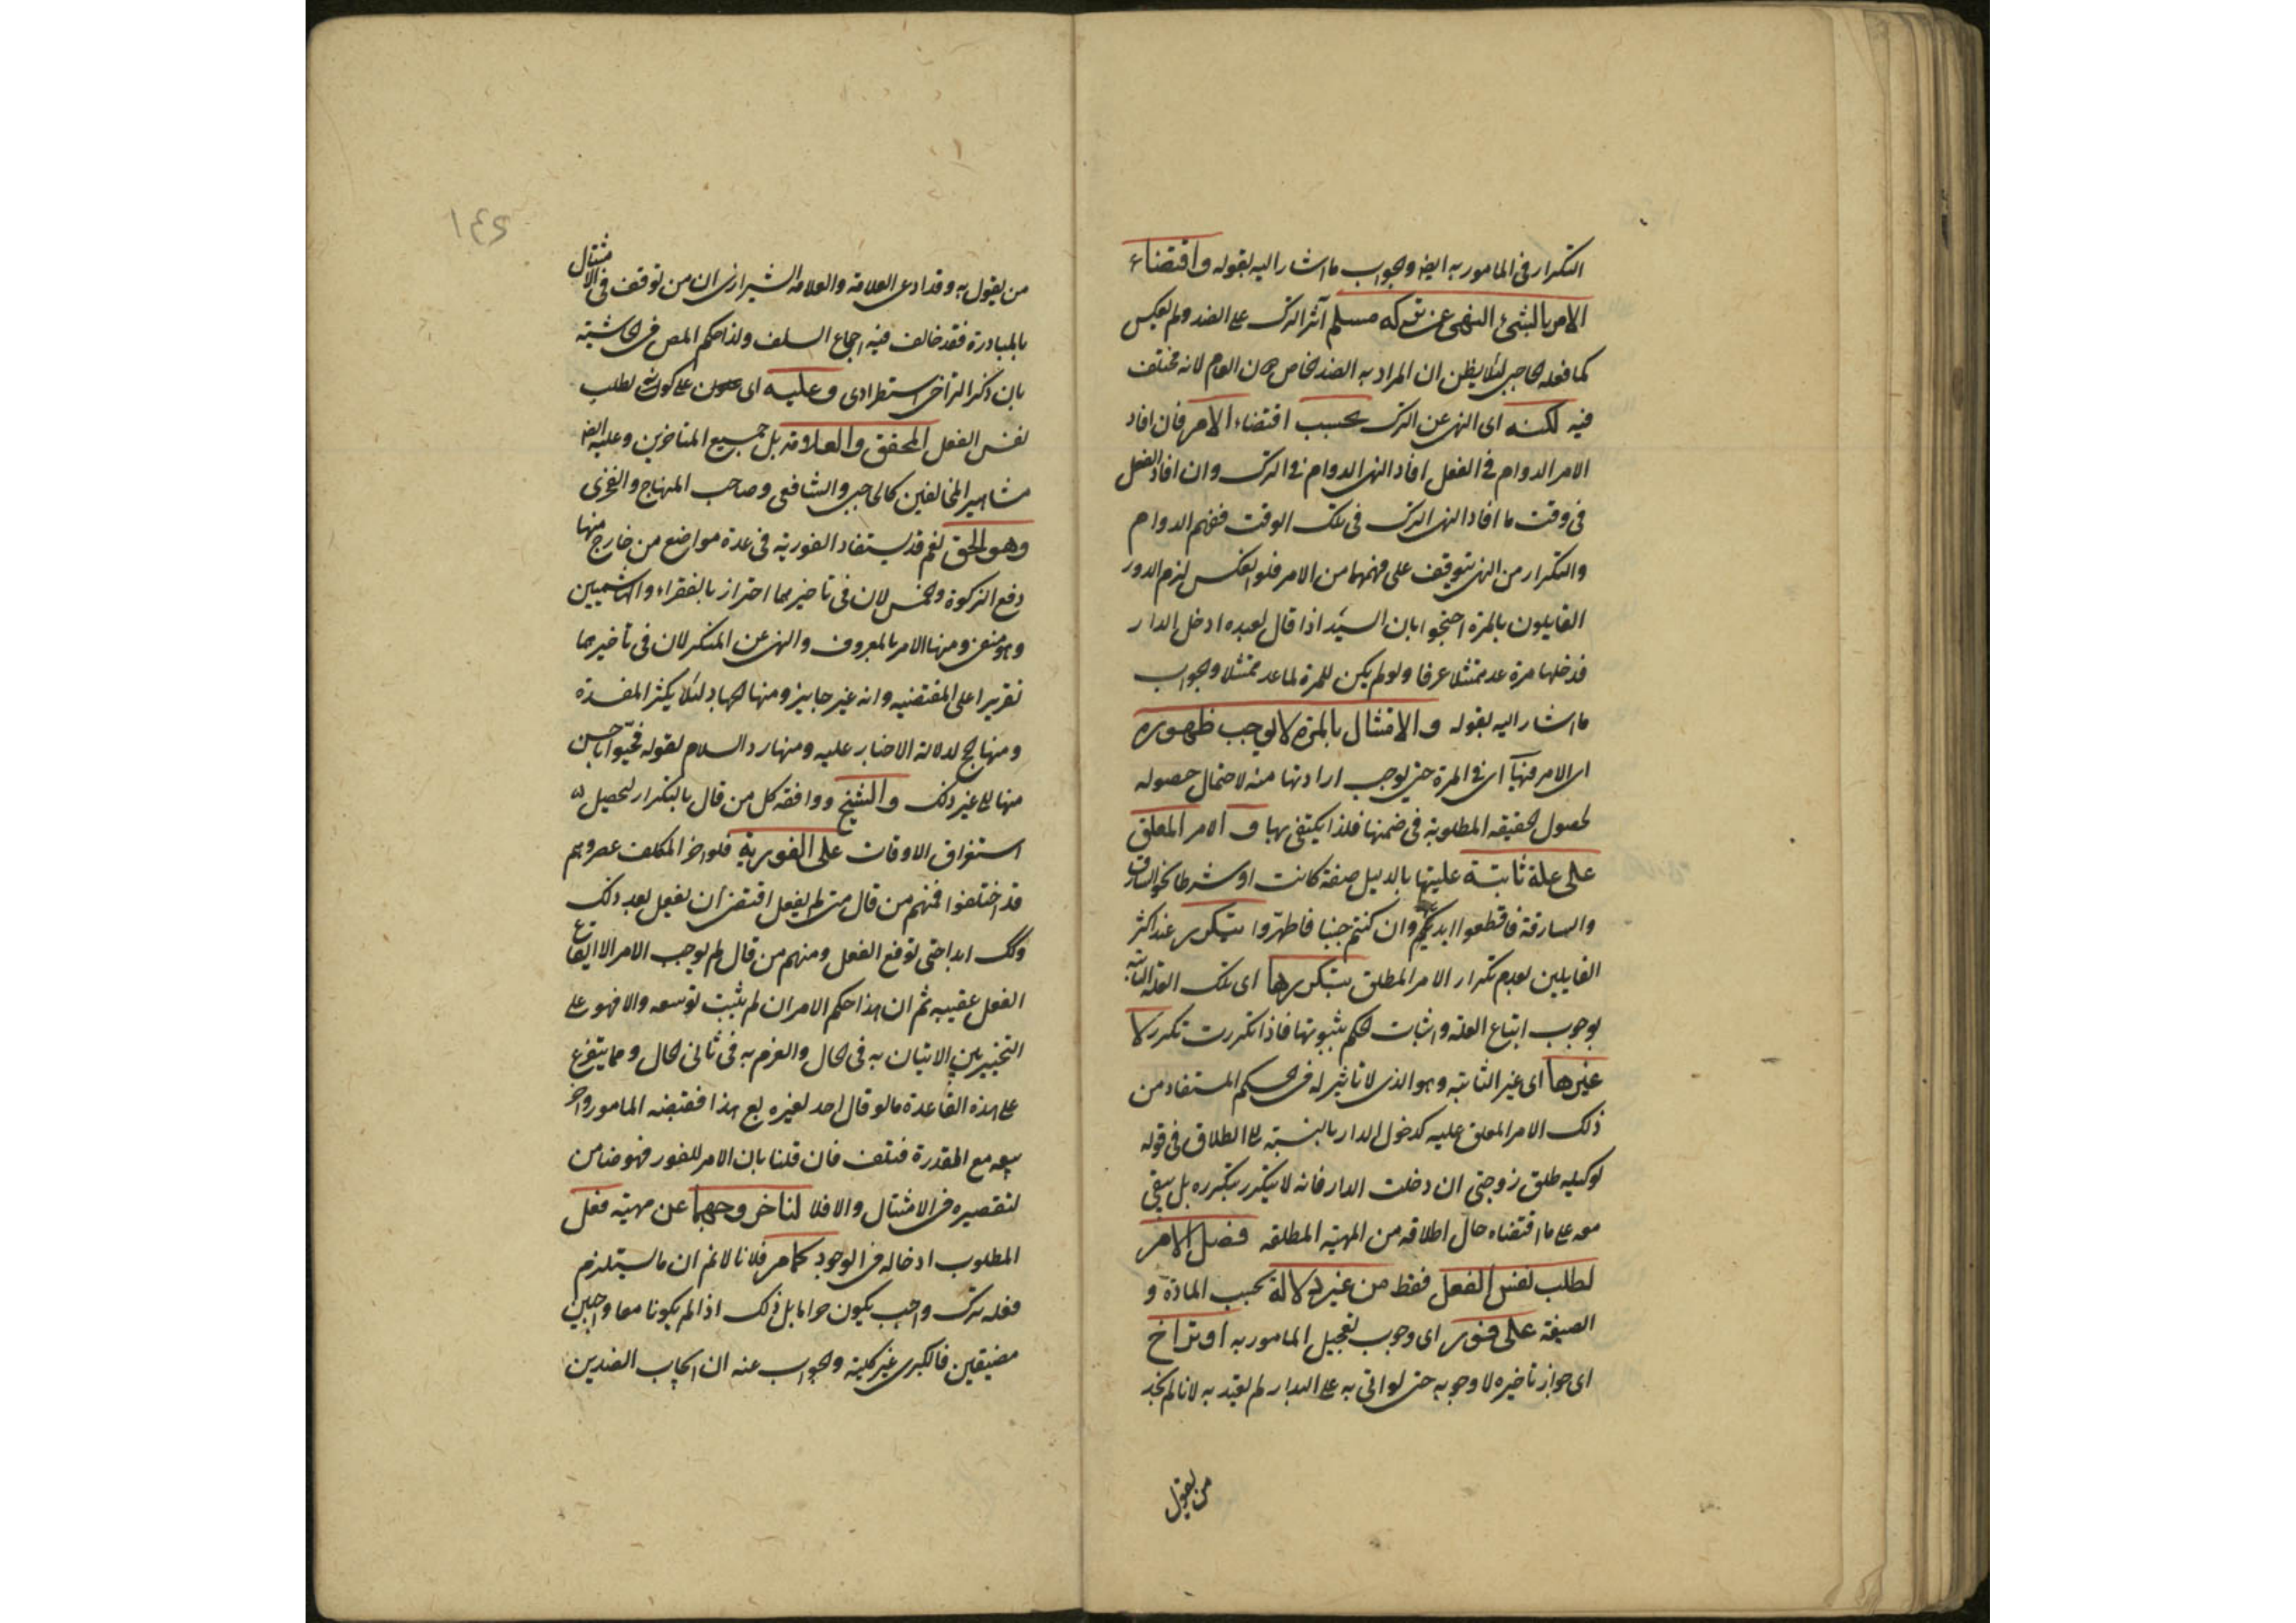 التكرار فى المامور به ايض والجواب ما اشار اليه بقوله واقتضاء
الامر بالشئ النهى عن تركه مسلم آثر الترك على الضد ولم يعكس
كما فعله الحاجبى لئلا يظن ان المراد به الضد الخاص العام لانه مختلف
فيه لكنه اى النهى عن الترك بحسب اقتضاء الامر فان افاد
الامر الدوام فى الفعل افاد النهى الدوام فى الترك وان افاد الفعل
فى وقت ما افاد النهى الترك فى تلك الوقت ففهم الدوام
والتكرار من النهى يتوقف على فهمهما من الامر فلو انعكس لزم الدور
القايلون بالمرة احتجوا بان السيد اذا قال لعبده ادخل الدار
فدخلها مرة عد ممتثلا عرفا ولو لم يكن للمرة لما عد ممتثلا والجواب
ما اشار اليه بقوله والامتثال بالمرة لا يوجب ظهوره
اى الامر فيها اى فى المرة حتى يوجب ارادتها منه لاحتمال حصوله
لحصول الحقيقه المطلوبة فى ضمنها فلذا يكتفى بها و الامر المعلق
على علة ثابتة عليتها بالدليل صفة كانت او شرطا نحو السارق
والسارقة فاقطعوا ايديهما وان كنتم جنبا فاطهروا يتكرر عند اكثر
القايلين بعدم تكرار الامر المطلق بتكررها اى تلك العلة الثابتة
بوجوب اتباع العلة واثبات الحكم بثبوتها فاذا تكررت تكرر لا
غيرها اى غير الثابتة وهو الذى لا تاثير له فى الحكم المستفاد من
ذلك الامر المعلق عليه كدخول الدار بالنسبة الى الطلاق فى قوله
لوكيله طلق زوجتى ان دخلت الدار فانه لا يتكرر بتكرره بل يبقى
معه على ما اقتضاه حال اطلاقه من المهية المطلقه فصل الامر
لطلب نفس الفعل فقط من غير دلالة بحسب المادة و
الصيغة على فور اى وجوب تعجيل المامور به او تراخ
اى جواز تاخيره لا وجوبه حتى لو اتى به على البدار لم يعتد به لانا لم نجد
من يقول
١٤٥
من يقول به وقد ادعى العلامة والعلامه الشيرازى ان من توقف فى الامتثال
بالمبادرة فقد خالف فيه اجماع السلف ولذا حكم المص فى الحاشية
بان ذكر التراخى استطرادى وعليه اى على كونه لطلب
نفس الفعل المحقق والعلامة بل جميع المتاخرين وعليه ايض
مشاهير المخالفين كالحاجبى والشافعى وصاحب المنهاج والفخرى
وهو الحق نعم قد يستفاد الفورية فى عدة مواضع من خارج منها
دفع الزكوة والخمس لان فى تاخيرهما بالفقراء والهاشميين
وهو منفى ومنها الامر بالمعروف والنهى عن المنكر لان فى تاخيرهما
تقريرا على وانه غير جايز ومنها الجهاد لئلا يكثر المفسدة
ومنها الحج لدلالة الاخبار عليه ومنها رد السلام لقوله فحيوا باحسن
منها الى غير ذلك والشيخ ووافقه كل من قال بالتكرار لتحصيل
استغراق الاوقات على الفورية فلو اخر المكلف عصى وهم
قد اختلفوا فمنهم من قال متى لم يفعل اقتضى ان يفعل بعد ذلك
وكك ابدا حتى توقع الفعل ومنهم من قال لم يوجب الامر الا ايقاع
الفعل عقيبه ثم ان هذا حكم الامر ان لم يثبت توسعه والا فهو على
التخيير بين الاتيان به فى الحال والعزم به فى ثانى الحال ومما يتفرع
على هذه القاعدة ما لو قال احد لغيره بع هذا فقبضه المامور واخر
بيعه مع المقدرة فتلف فان قلنا بان الامر للفور فهو ضامن
لتقصيره فى الامتثال والا فلا لنا خروجهما عن مهية فعل
المطلوب ادخاله فى الوجود كما مر فلانا لانم ان ما يستلزم
فعله ترك واجب يكون حراما بل ذلك اذا لم يكونا معا واجبين
مضيقين فالكبرى غير كلية والجواب عنه ان ايجاب الضدين